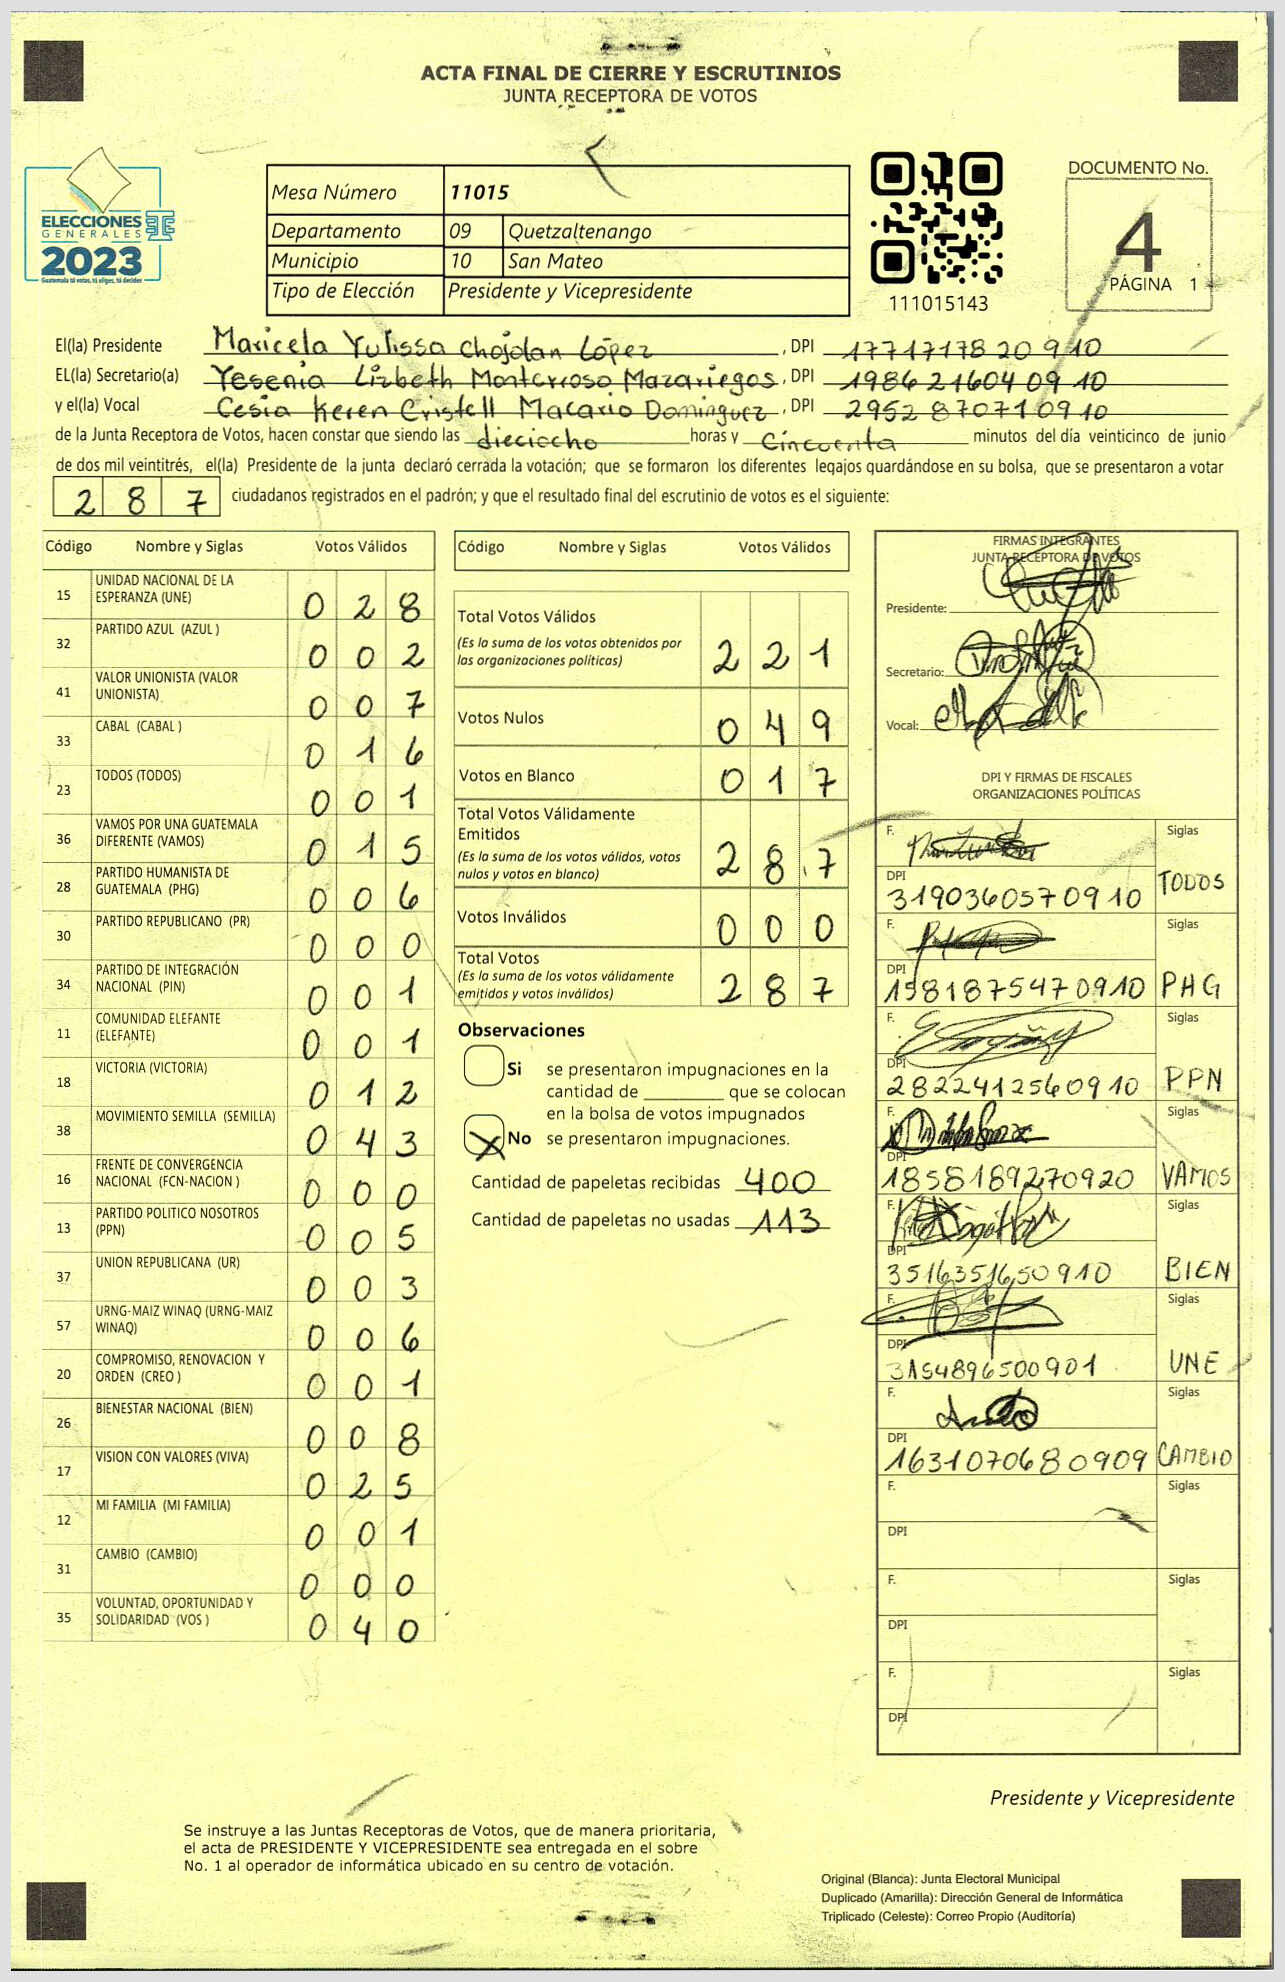 ACTA FINAL DE CIERRE Y ESCRUTINIOS
JUNTA RECEPTORA DE VOTOS
ELECCIONES
GENERALES
2023
Guatemala tú votas, tú eliges, tú decides
Mesa Número 11015
Departamento 09 Quetzaltenango
Municipio 10 San Mateo
Tipo de Elección Presidente y Vicepresidente
111015143
DOCUMENTO No.
4
PÁGINA 1
El(la) Presidente Maricela Yulissa Chojolan López, DPI 17717178 20 910
EL(la) Secretario(a) Yesenia Lizbeth Monterroso Mazariegos, DPI 1986 21604 09 10
y el(la) Vocal Cesia Keren Cristell Macario Dominguez, DPI 2952 87071 0910
de la Junta Receptora de Votos, hacen constar que siendo las dieciocho horas y Cincuenta minutos del día veinticinco de junio
de dos mil veintitrés, el(la) Presidente de la junta declaró cerrada la votación; que se formaron los diferentes legajos guardándose en su bolsa, que se presentaron a votar
287 ciudadanos registrados en el padrón; y que el resultado final del escrutinio de votos es el siguiente:
Código Nombre y Siglas Votos Válidos
15 UNIDAD NACIONAL DE LA ESPERANZA (UNE) 028
32 PARTIDO AZUL (AZUL ) 002
41 VALOR UNIONISTA (VALOR UNIONISTA) 007
33 CABAL (CABAL ) 016
23 TODOS (TODOS) 001
36 VAMOS POR UNA GUATEMALA DIFERENTE (VAMOS) 015
28 PARTIDO HUMANISTA DE GUATEMALA (PHG) 006
30 PARTIDO REPUBLICANO (PR) 000
34 PARTIDO DE INTEGRACIÓN NACIONAL (PIN) 001
11 COMUNIDAD ELEFANTE (ELEFANTE) 001
18 VICTORIA (VICTORIA) 012
38 MOVIMIENTO SEMILLA (SEMILLA) 043
16 FRENTE DE CONVERGENCIA NACIONAL (FCN-NACION ) 000
13 PARTIDO POLITICO NOSOTROS (PPN) 005
37 UNION REPUBLICANA (UR) 003
57 URNG-MAIZ WINAQ (URNG-MAIZ WINAQ) 006
20 COMPROMISO, RENOVACION Y ORDEN (CREO ) 001
26 BIENESTAR NACIONAL (BIEN) 008
17 VISION CON VALORES (VIVA) 025
12 MI FAMILIA (MI FAMILIA) 001
31 CAMBIO (CAMBIO) 000
35 VOLUNTAD, OPORTUNIDAD Y SOLIDARIDAD (VOS ) 040
Código Nombre y Siglas Votos Válidos
Total Votos Válidos
(Es la suma de los votos obtenidos por las organizaciones políticas) 221
Votos Nulos 049
Votos en Blanco 017
Total Votos Válidamente Emitidos
(Es la suma de los votos válidos, votos nulos y votos en blanco) 287
Votos Inválidos 000
Total Votos
(Es la suma de los votos válidamente emitidos y votos inválidos) 287
Observaciones
Si se presentaron impugnaciones en la
cantidad de ________ que se colocan
en la bolsa de votos impugnados
X No se presentaron impugnaciones.
Cantidad de papeletas recibidas 400
Cantidad de papeletas no usadas 113
FIRMAS INTEGRANTES
JUNTA RECEPTORA DE VOTOS
Presidente:
Secretario:
Vocal:
DPI Y FIRMAS DE FISCALES
ORGANIZACIONES POLÍTICAS
F. Siglas
DPI 319036057 0910 TODOS
F. Siglas
DPI 1581875470910 PHG
F. Siglas
DPI 2822412560910 PPN
F. Siglas
DPI 1858189270920 VAMOS
F. Siglas
DPI 3516351650910 BIEN
F. Siglas
DPI 3154896500901 UNE
F. Siglas
DPI 1631070680909 CAMBIO
F. Siglas
DPI
F. Siglas
DPI
F. Siglas
DPI
Presidente y Vicepresidente
Se instruye a las Juntas Receptoras de Votos, que de manera prioritaria,
el acta de PRESIDENTE Y VICEPRESIDENTE sea entregada en el sobre
No. 1 al operador de informática ubicado en su centro de votación.
Original (Blanca): Junta Electoral Municipal
Duplicado (Amarilla): Dirección General de Informática
Triplicado (Celeste): Correo Propio (Auditoría)